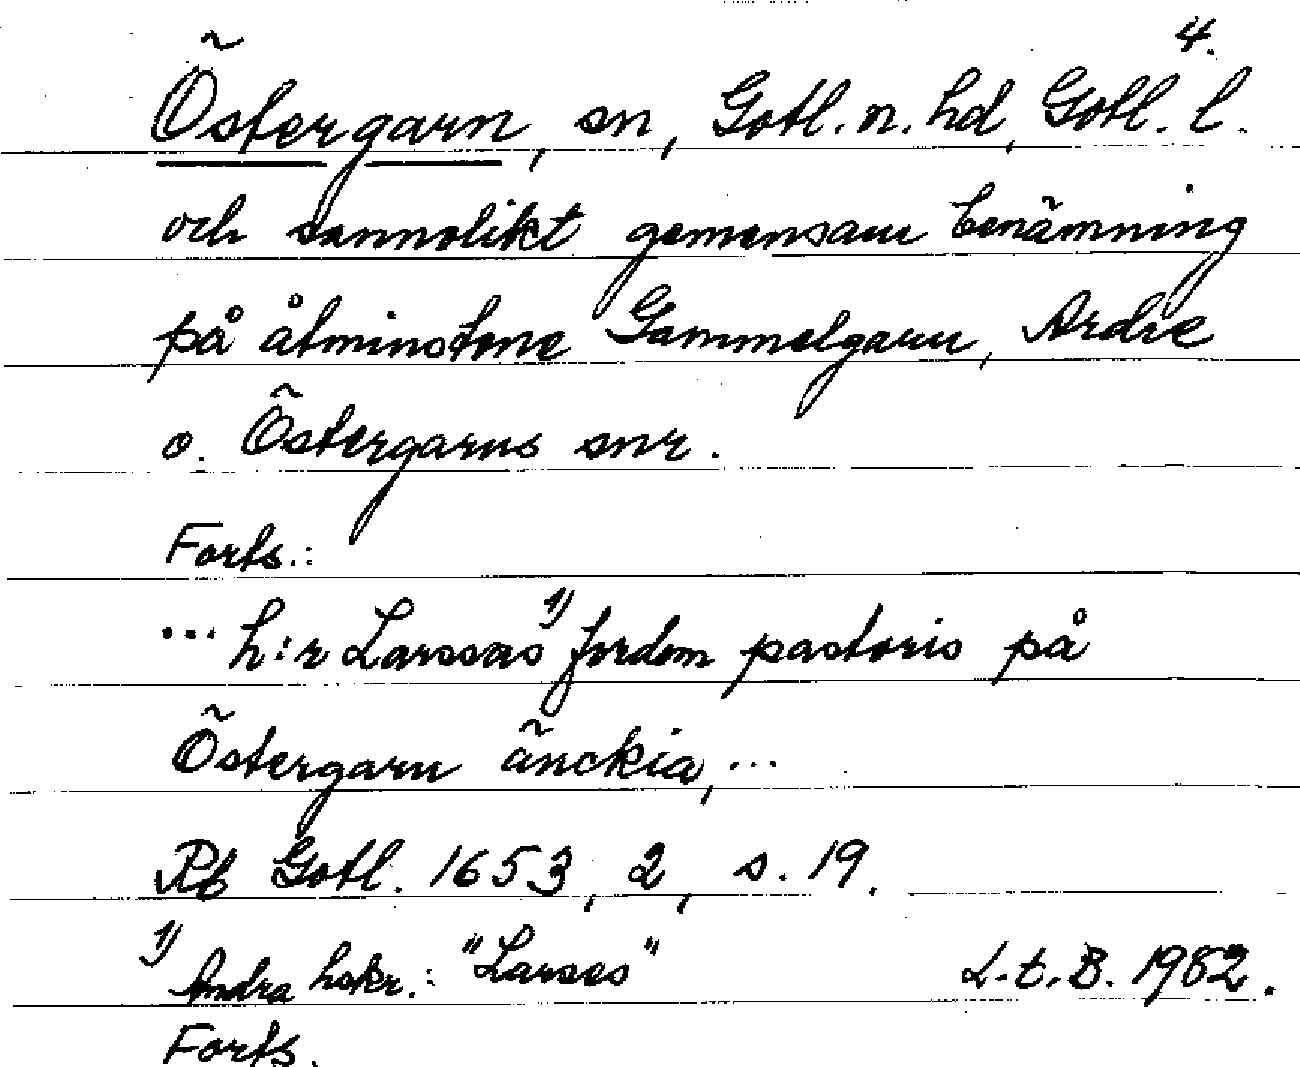 4.
Östergarn, sn, Gotl. n. hd, Gotl. l.
och sannolikt gemensam benämning
på åtminstone Gammelgarn, Ardre
o. Östergarns snr.
Forts.:
... h:r Larssas 1) fordom pastoris på
Östergarn änckia, ...
Rb Gotl. 1653, 2, s. 19.
1) Andra hskr.: "Larses" L.t.B. 1982.
Forts.